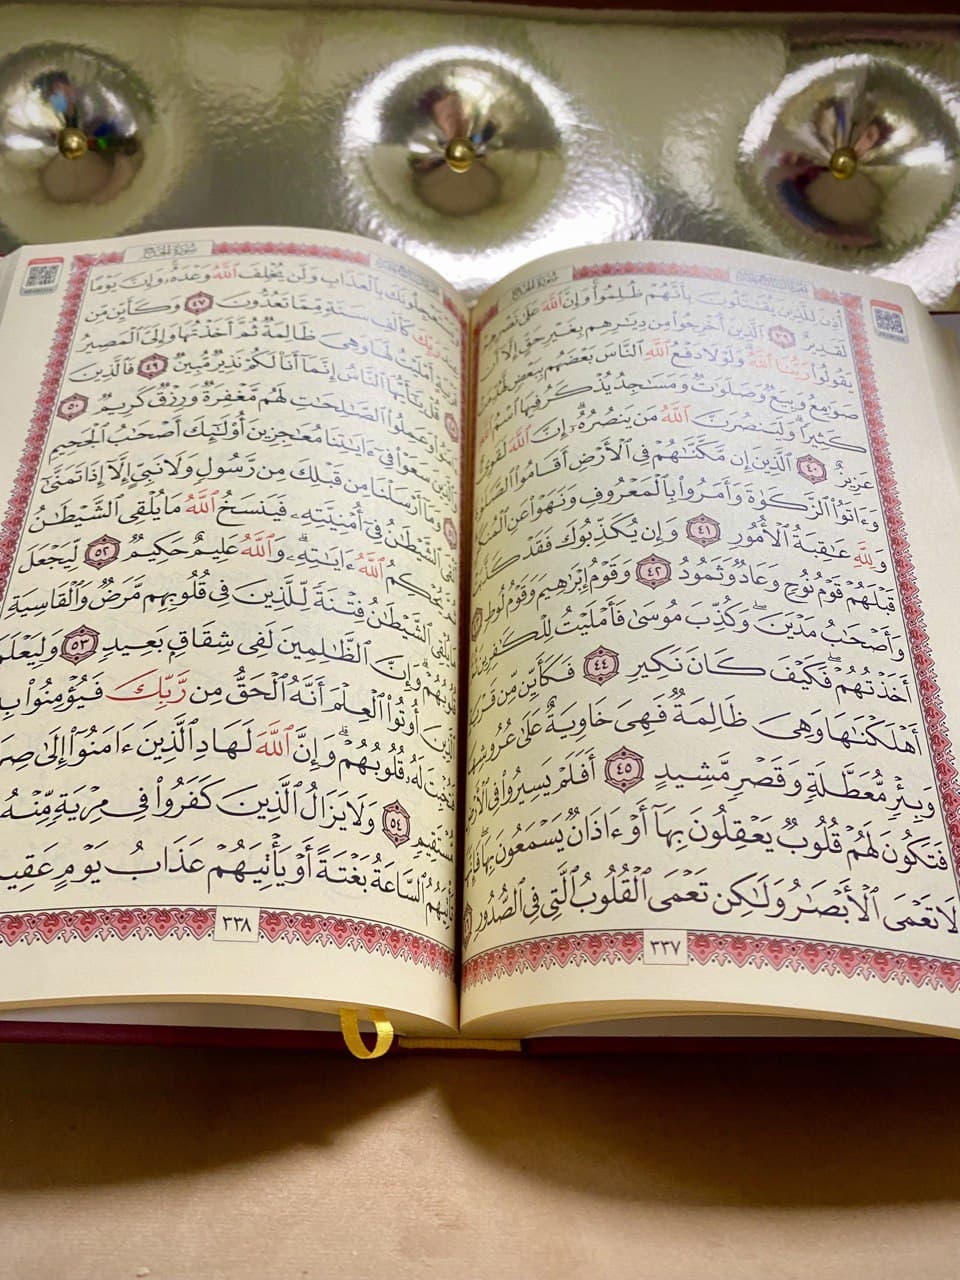 سُورَةُ الحَجِّ
أُذِنَ لِلَّذِينَ يُقَٰتَلُونَ بِأَنَّهُمۡ ظُلِمُواْۚ وَإِنَّ ٱللَّهَ عَلَىٰ نَصۡرِهِمۡ
لَقَدِيرٌ ٣٩ ٱلَّذِينَ أُخۡرِجُواْ مِن دِيَٰرِهِم بِغَيۡرِ حَقٍّ إِلَّآ أَن
يَقُولُواْ رَبُّنَا ٱللَّهُۗ وَلَوۡلَا دَفۡعُ ٱللَّهِ ٱلنَّاسَ بَعۡضَهُم بِبَعۡضٖ لَّهُدِّمَتۡ
صَوَٰمِعُ وَبِيَعٞ وَصَلَوَٰتٞ وَمَسَٰجِدُ يُذۡكَرُ فِيهَا ٱسۡمُ ٱللَّهِ
كَثِيرٗاۗ وَلَيَنصُرَنَّ ٱللَّهُ مَن يَنصُرُهُۥٓۚ إِنَّ ٱللَّهَ لَقَوِيٌّ
عَزِيزٌ ٤٠ ٱلَّذِينَ إِن مَّكَّنَّٰهُمۡ فِي ٱلۡأَرۡضِ أَقَامُواْ ٱلصَّلَوٰةَ
وَءَاتَوُاْ ٱلزَّكَوٰةَ وَأَمَرُواْ بِٱلۡمَعۡرُوفِ وَنَهَوۡاْ عَنِ ٱلۡمُنكَرِۗ
وَلِلَّهِ عَٰقِبَةُ ٱلۡأُمُورِ ٤١ وَإِن يُكَذِّبُوكَ فَقَدۡ كَذَّبَتۡ
قَبۡلَهُمۡ قَوۡمُ نُوحٖ وَعَادٞ وَثَمُودُ ٤٢ وَقَوۡمُ إِبۡرَٰهِيمَ وَقَوۡمُ لُوطٖ
وَأَصۡحَٰبُ مَدۡيَنَۖ وَكُذِّبَ مُوسَىٰ فَأَمۡلَيۡتُ لِلۡكَٰفِرِينَ ثُمَّ
أَخَذۡتُهُمۡۖ فَكَيۡفَ كَانَ نَكِيرِ ٤٤ فَكَأَيِّن مِّن قَرۡيَةٍ
أَهۡلَكۡنَٰهَا وَهِيَ ظَالِمَةٞ فَهِيَ خَاوِيَةٌ عَلَىٰ عُرُوشِهَا
وَبِئۡرٖ مُّعَطَّلَةٖ وَقَصۡرٖ مَّشِيدٍ ٤٥ أَفَلَمۡ يَسِيرُواْ فِي ٱلۡأَرۡضِ
فَتَكُونَ لَهُمۡ قُلُوبٞ يَعۡقِلُونَ بِهَآ أَوۡ ءَاذَانٞ يَسۡمَعُونَ بِهَاۖ فَإِنَّهَا
لَا تَعۡمَى ٱلۡأَبۡصَٰرُ وَلَٰكِن تَعۡمَى ٱلۡقُلُوبُ ٱلَّتِي فِي ٱلصُّدُورِ
٣٣٧
سُورَةُ الحَجِّ
وَيَسۡتَعۡجِلُونَكَ بِٱلۡعَذَابِ وَلَن يُخۡلِفَ ٱللَّهُ وَعۡدَهُۥۚ وَإِنَّ يَوۡمًا
عِندَ رَبِّكَ كَأَلۡفِ سَنَةٖ مِّمَّا تَعُدُّونَ ٤٧ وَكَأَيِّن مِّن
قَرۡيَةٍ أَمۡلَيۡتُ لَهَا وَهِيَ ظَالِمَةٞ ثُمَّ أَخَذۡتُهَا وَإِلَيَّ ٱلۡمَصِيرُ
٤٨ قُلۡ يَٰٓأَيُّهَا ٱلنَّاسُ إِنَّمَآ أَنَا۠ لَكُمۡ نَذِيرٞ مُّبِينٞ ٤٩ فَٱلَّذِينَ
ءَامَنُواْ وَعَمِلُواْ ٱلصَّٰلِحَٰتِ لَهُم مَّغۡفِرَةٞ وَرِزۡقٞ كَرِيمٞ ٥٠
وَٱلَّذِينَ سَعَوۡاْ فِيٓ ءَايَٰتِنَا مُعَٰجِزِينَ أُوْلَٰٓئِكَ أَصۡحَٰبُ ٱلۡجَحِيمِ
٥١ وَمَآ أَرۡسَلۡنَا مِن قَبۡلِكَ مِن رَّسُولٖ وَلَا نَبِيٍّ إِلَّآ إِذَا تَمَنَّىٰٓ
أَلۡقَى ٱلشَّيۡطَٰنُ فِيٓ أُمۡنِيَّتِهِۦ فَيَنسَخُ ٱللَّهُ مَا يُلۡقِي ٱلشَّيۡطَٰنُ
ثُمَّ يُحۡكِمُ ٱللَّهُ ءَايَٰتِهِۦۗ وَٱللَّهُ عَلِيمٌ حَكِيمٞ ٥٢ لِّيَجۡعَلَ
مَا يُلۡقِي ٱلشَّيۡطَٰنُ فِتۡنَةٗ لِّلَّذِينَ فِي قُلُوبِهِم مَّرَضٞ وَٱلۡقَاسِيَةِ
قُلُوبُهُمۡۗ وَإِنَّ ٱلظَّٰلِمِينَ لَفِي شِقَاقِۭ بَعِيدٖ ٥٣ وَلِيَعۡلَمَ
ٱلَّذِينَ أُوتُواْ ٱلۡعِلۡمَ أَنَّهُ ٱلۡحَقُّ مِن رَّبِّكَ فَيُؤۡمِنُواْ
فَتُخۡبِتَ لَهُۥ قُلُوبُهُمۡۗ وَإِنَّ ٱللَّهَ لَهَادِ ٱلَّذِينَ ءَامَنُوٓاْ إِلَىٰ
مُّسۡتَقِيمٖ ٥٤ وَلَا يَزَالُ ٱلَّذِينَ كَفَرُواْ فِي مِرۡيَةٖ مِّنۡهُ
تَأۡتِيَهُمُ ٱلسَّاعَةُ بَغۡتَةً أَوۡ يَأۡتِيَهُمۡ عَذَابُ يَوۡمٍ عَقِيمٍ
٣٣٨